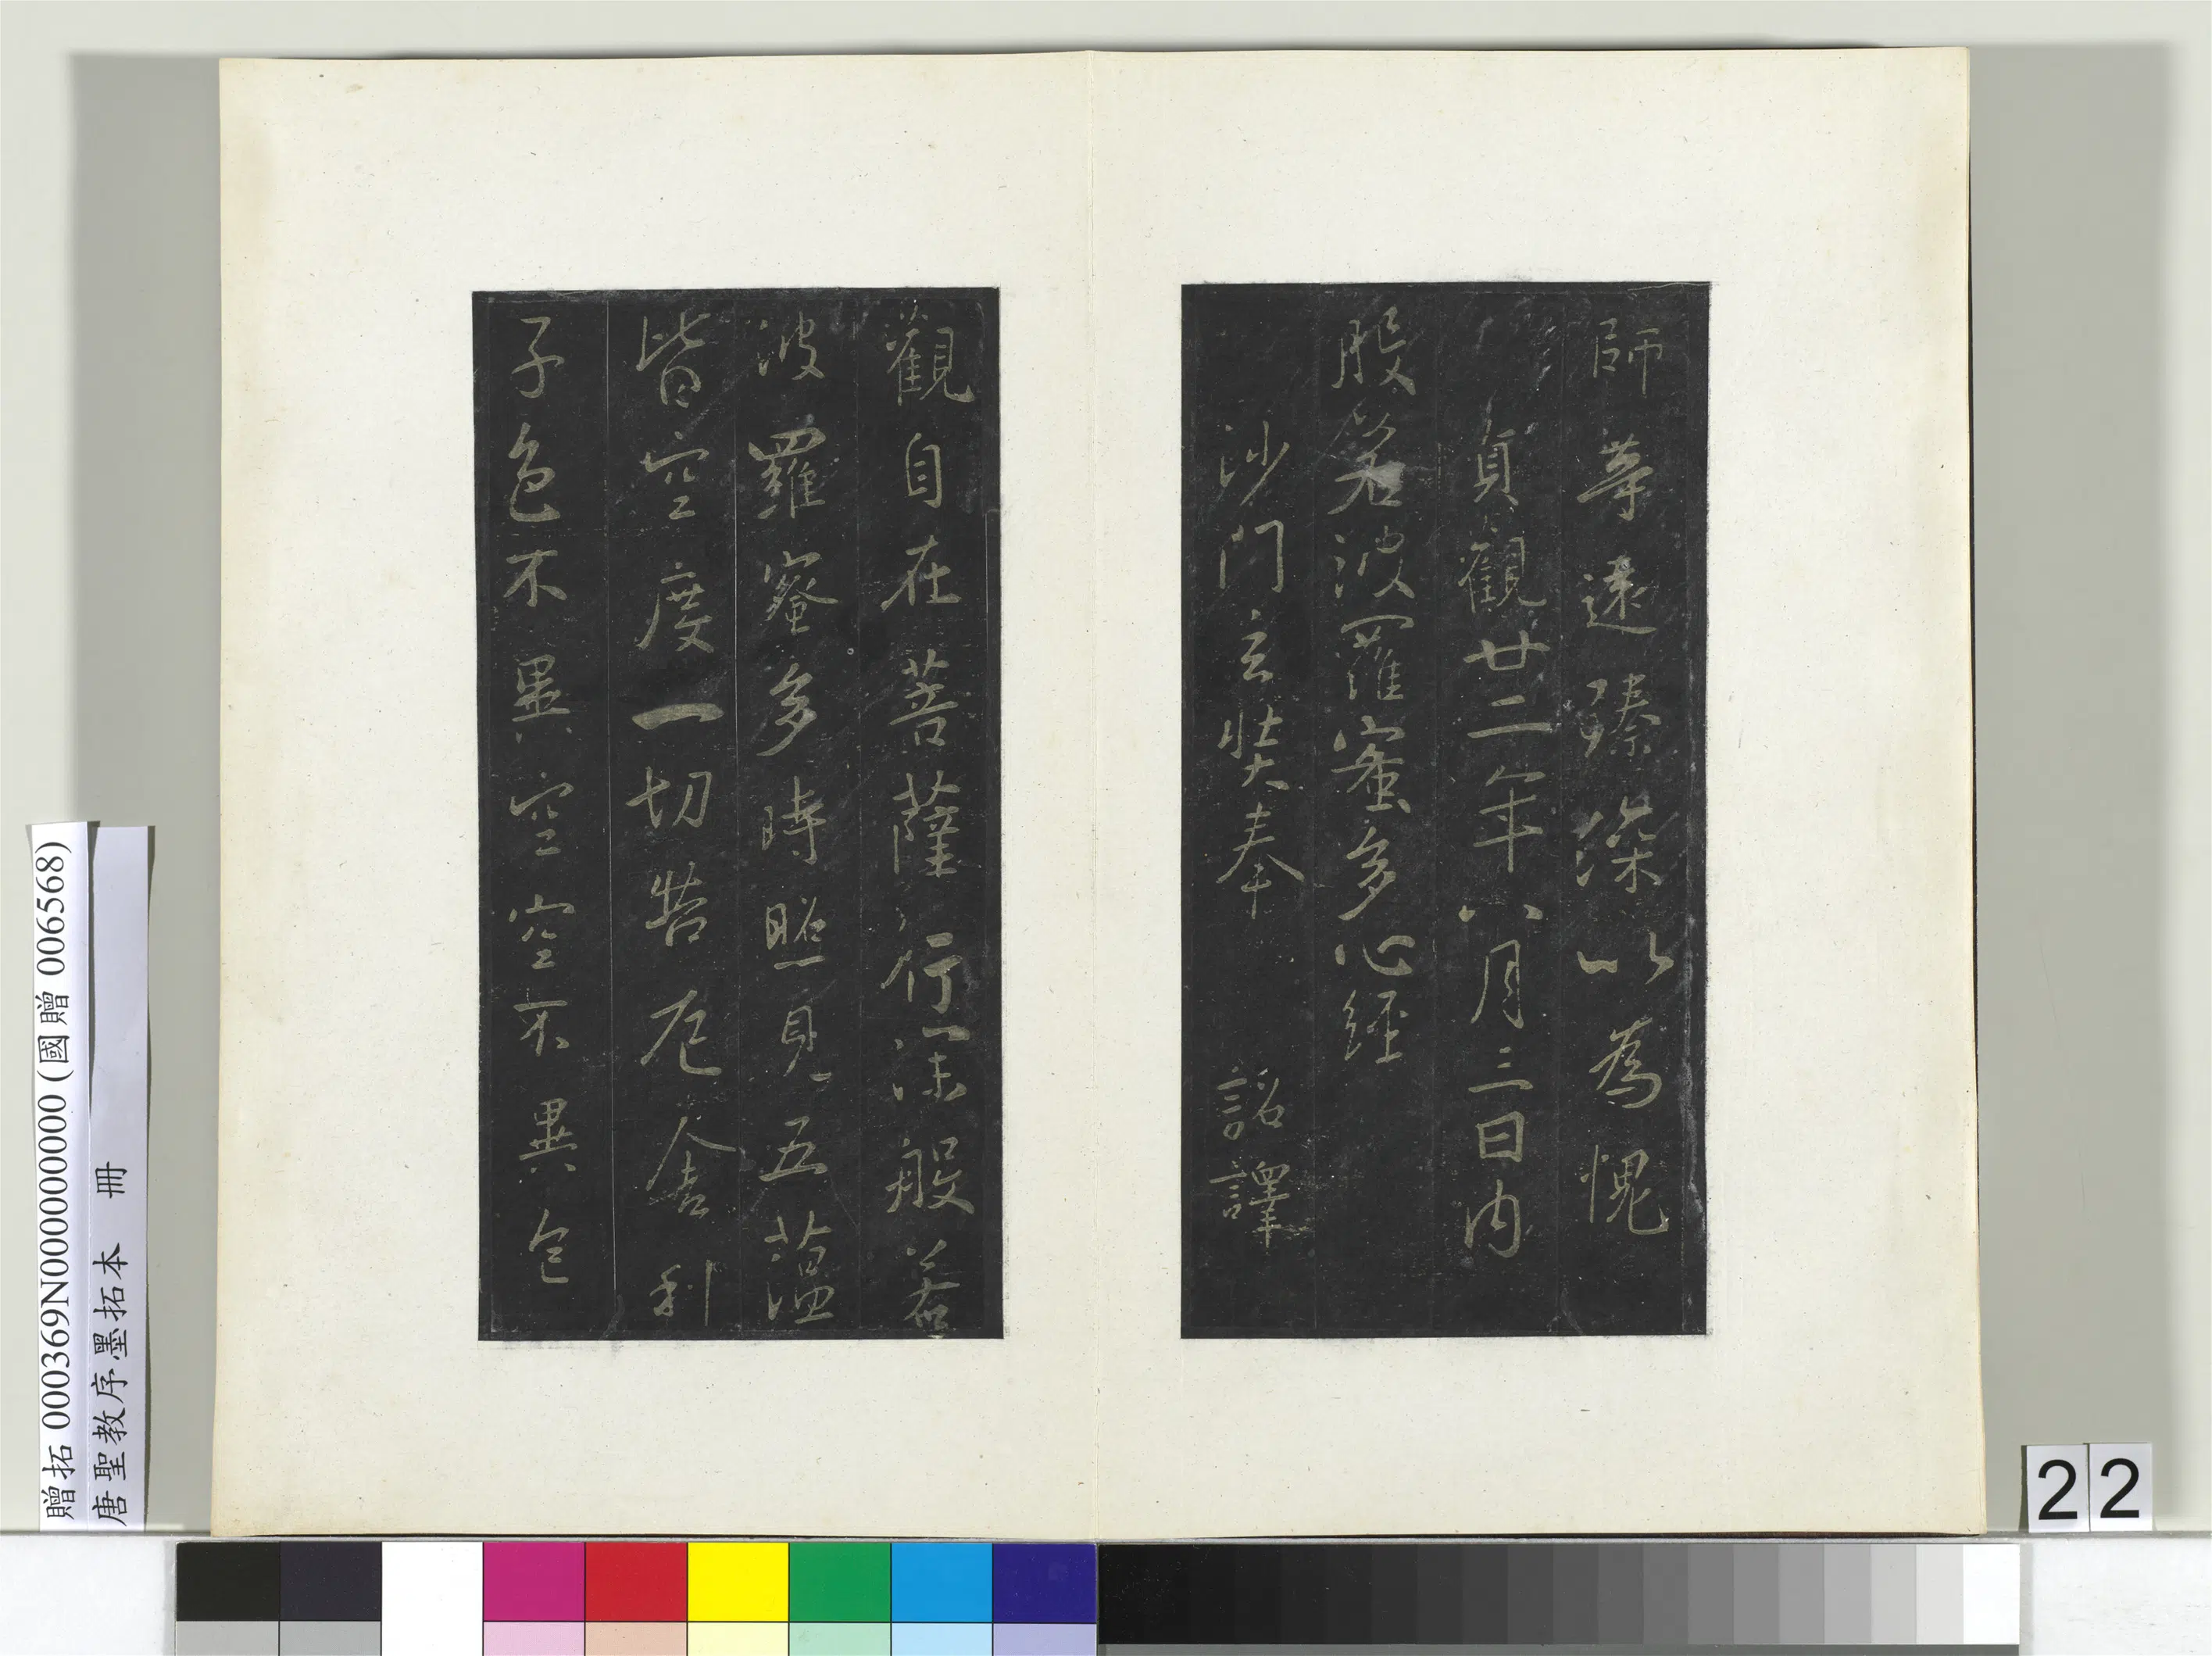 師等遠臻深以為愧
貞觀廿二年八月三日內
般若波羅蜜多心經
沙門玄奘奉　詔譯
觀自在菩薩行深般若
波羅蜜多時照見五蘊
皆空度一切苦厄舍利
子色不異空空不異色
贈拓 000369N000000000 (國贈 006568)
唐聖教序墨拓本　冊
22